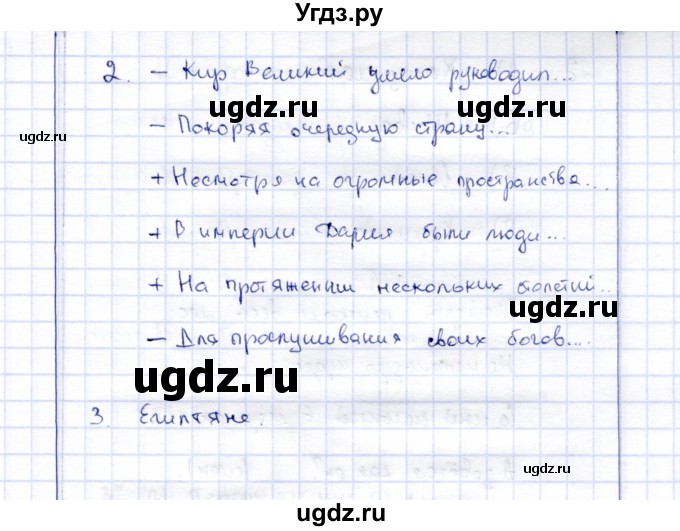 Угдз.ру
2. – Кир Великий умело руководил...
ugdz.ru ugdz.ru ugdz.ru
– Покоряя очередную страну...
+ Несмотря на огромные пространства...
+ В империи Дария были люди...
+ На протяжении нескольких столетий...
ugdz.ru
– Для прослушивания своих богов....
ugdz.ru
3. Египтяне.
ugdz.ru ugdz.ru
ugdz.ru